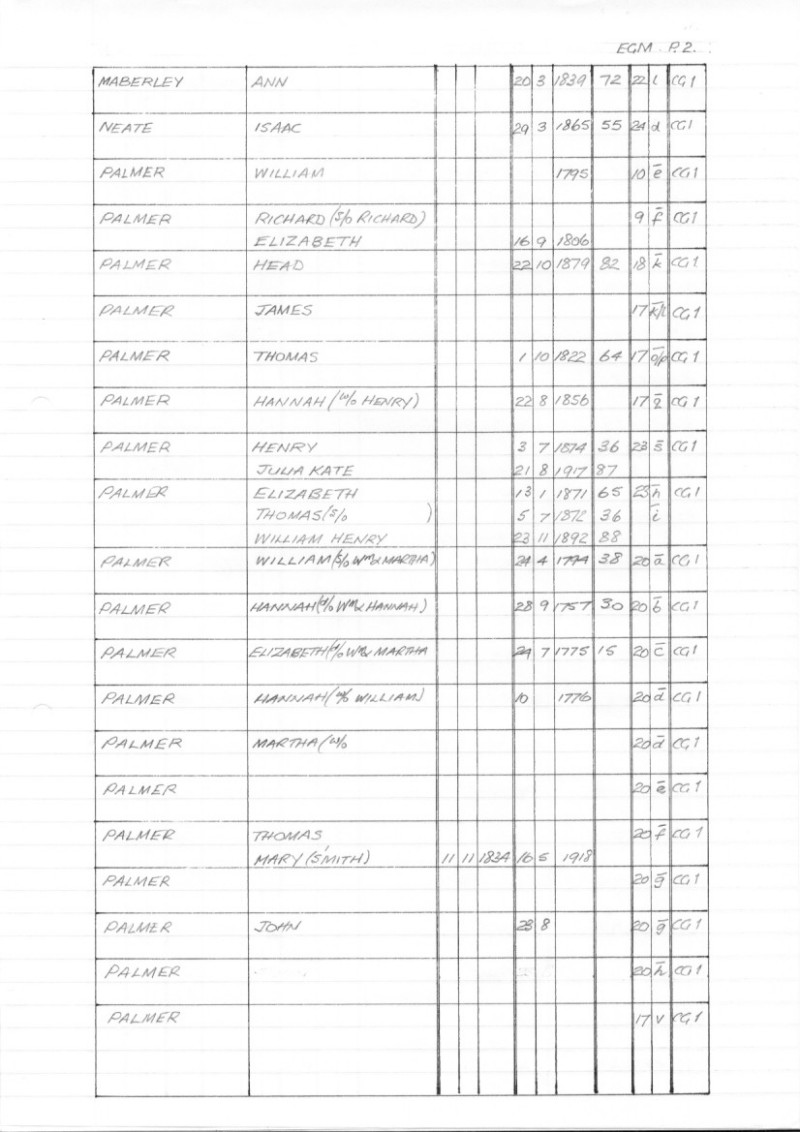 EGM P.2.
MABERLEY ANN 20 3 1839 72 22 l CG1
NEATE ISAAC 29 3 1865 55 24 d CG1
PALMER WILLIAM 1795 10 e̅ CG1
PALMER RICHARD (S/o RICHARD) 9 f̅ CG1
ELIZABETH 16 9 1806
PALMER HEAD 22 10 1879 82 18 k̅ CG1
PALMER JAMES 17 k̅/l CG1
PALMER THOMAS 1 10 1822 64 17 o̅/p CG1
PALMER HANNAH (W/o HENRY) 22 8 1856 17 q̅ CG1
PALMER HENRY 3 7 1874 36 23 s̅ CG1
JULIA KATE 21 8 1917 87
PALMER ELIZABETH 13 1 1871 65 23 h̅ CG1
THOMAS (S/o ) 5 7 36 i̅
WILLIAM HENRY 23 11 1892 88
PALMER WILLIAM (S/o Wm & MARTHA) 24 4 1794 38 20 a̅ CG1
PALMER HANNAH (d/o Wm & HANNAH) 28 9 1757 30 20 b̅ CG1
PALMER ELIZABETH (d/o Wm & MARTHA 24 7 1775 15 20 c̅ CG1
PALMER HANNAH (W/o WILLIAM) 10 1776 20 d̅ CG1
PALMER MARTHA (W/o 20 d̅ CG1
PALMER 20 e̅ CG1
PALMER THOMAS 20 f̅ CG1
MARY (SMITH) 11 11 1834 16 5 1918
PALMER 20 g̅ CG1
PALMER JOHN 23 8 20 g̅ CG1
PALMER 20 h̅ CG1
PALMER 17 v CG1